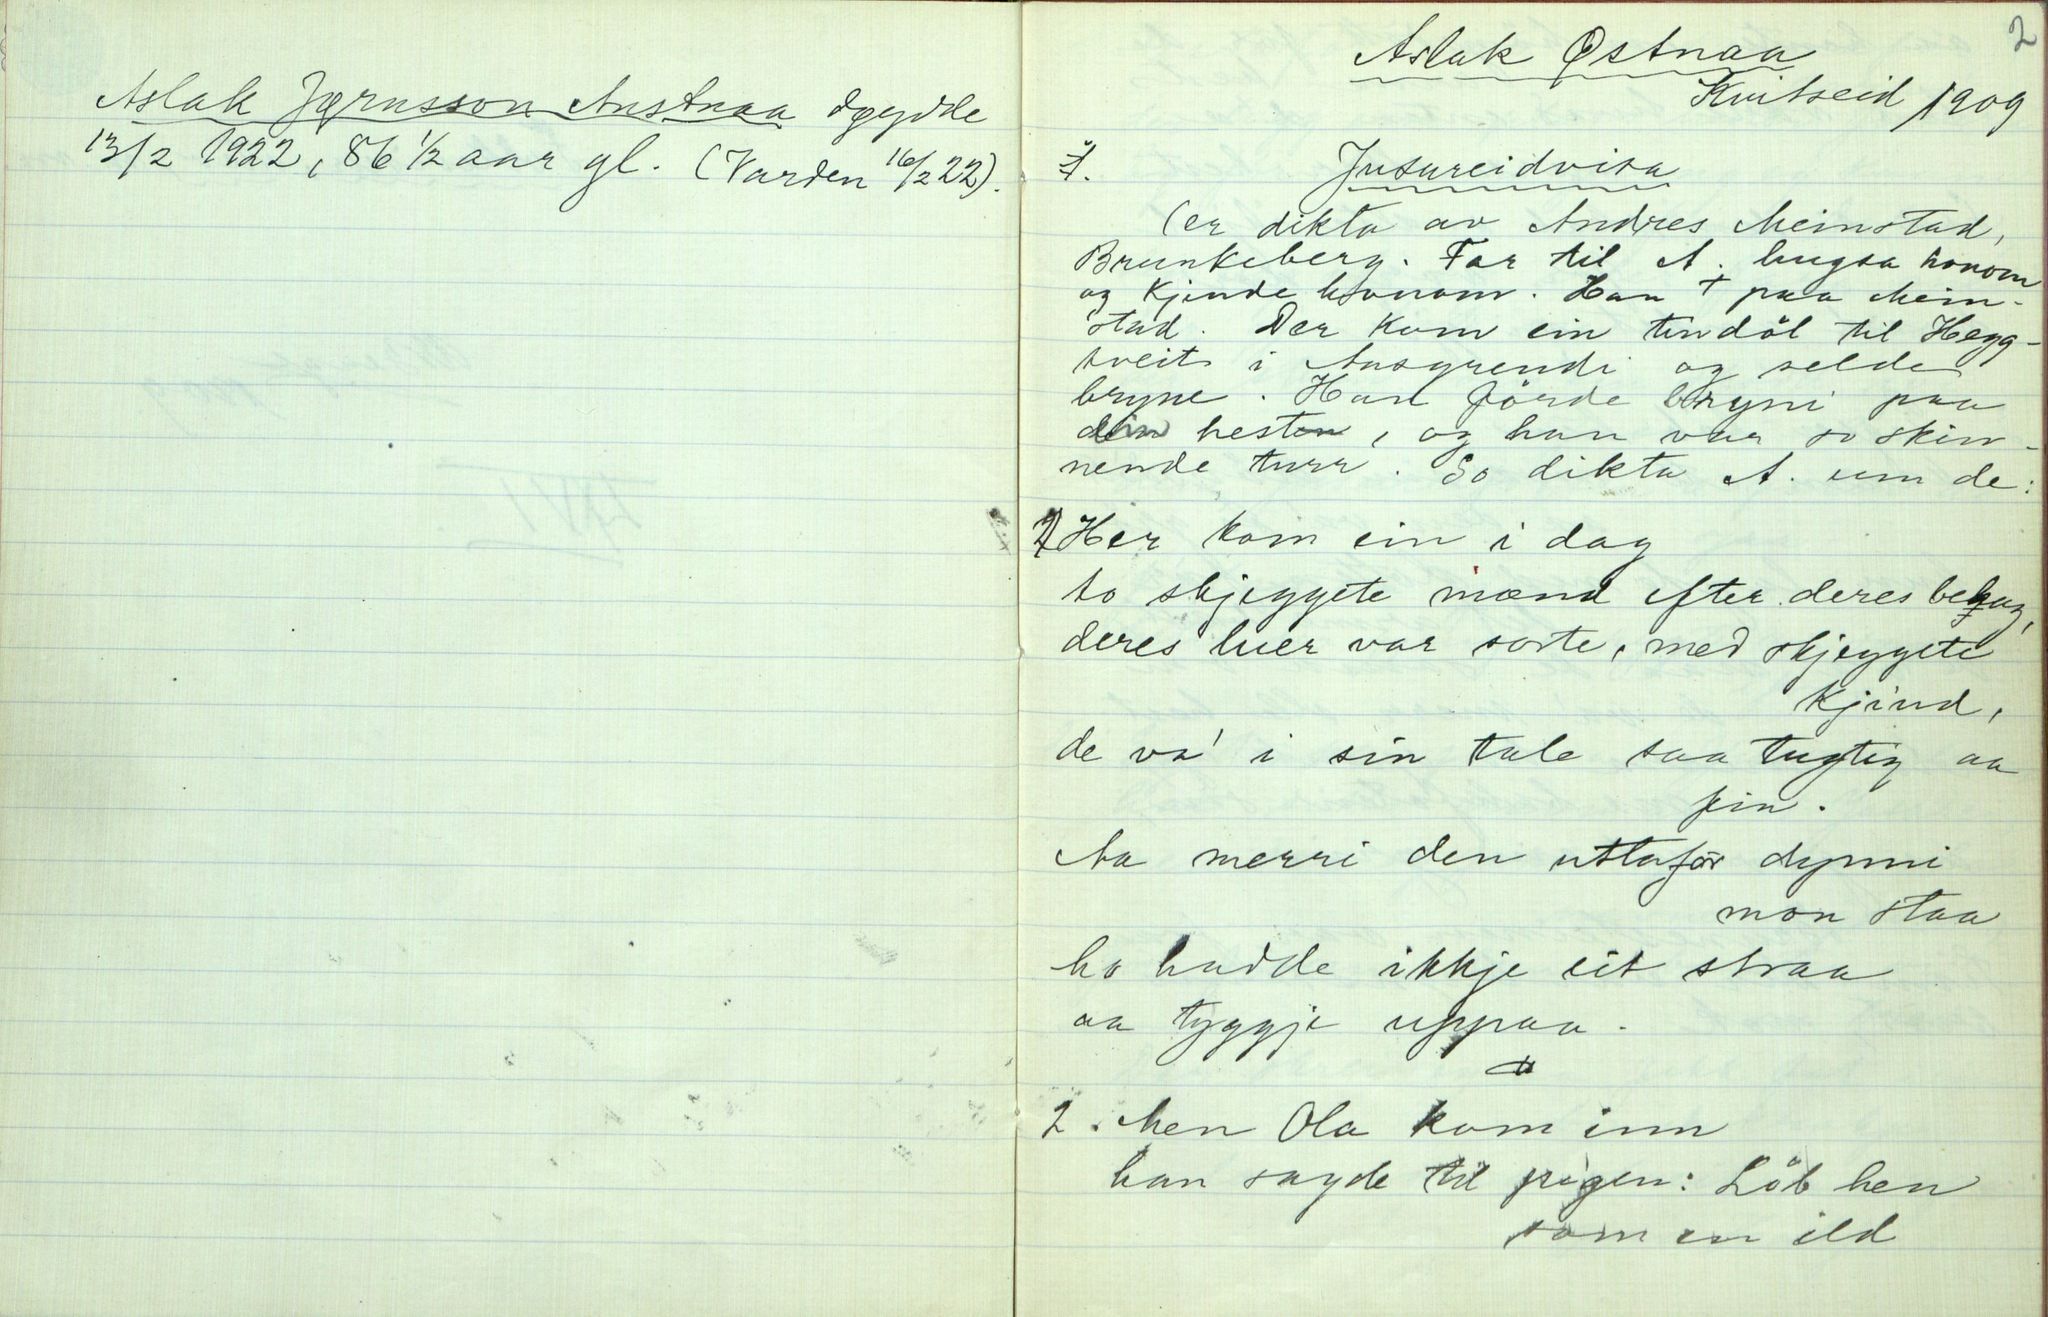 Aslak Jørnsson Austnaa døydde
13/2 1922, 86 1/2 aar gl. (Varden 16/2 22).
2
Aslak Østnaa
Kvitseid 1909
1. Jutureidvisa
(er dikta av Andres Meinstad,
Brunkeberg. Far til A. hugsa honom
og kjende honom. Han † paa Mein-
stad. Der kom ein tindöl til Hegg-
tveit i Ausgrendi og selde
bryne. Han förde bryni paa
ein hest, og han var so skin-
nende turr. So dikta A. um de:
Her kom ein i dag
to skjeggete mænd efter deres behag,
deres huer var sorte, med skjeggete
kjind,
de va' i sin tale saa tugtig aa
fin.
Aa merri den uttaför dynni
mon staa
ho hadde ikkje eit straa
aa tyggje uppaa.
2. Men Ola kom inn
han sagde til pigen: Löb hen
som en ild